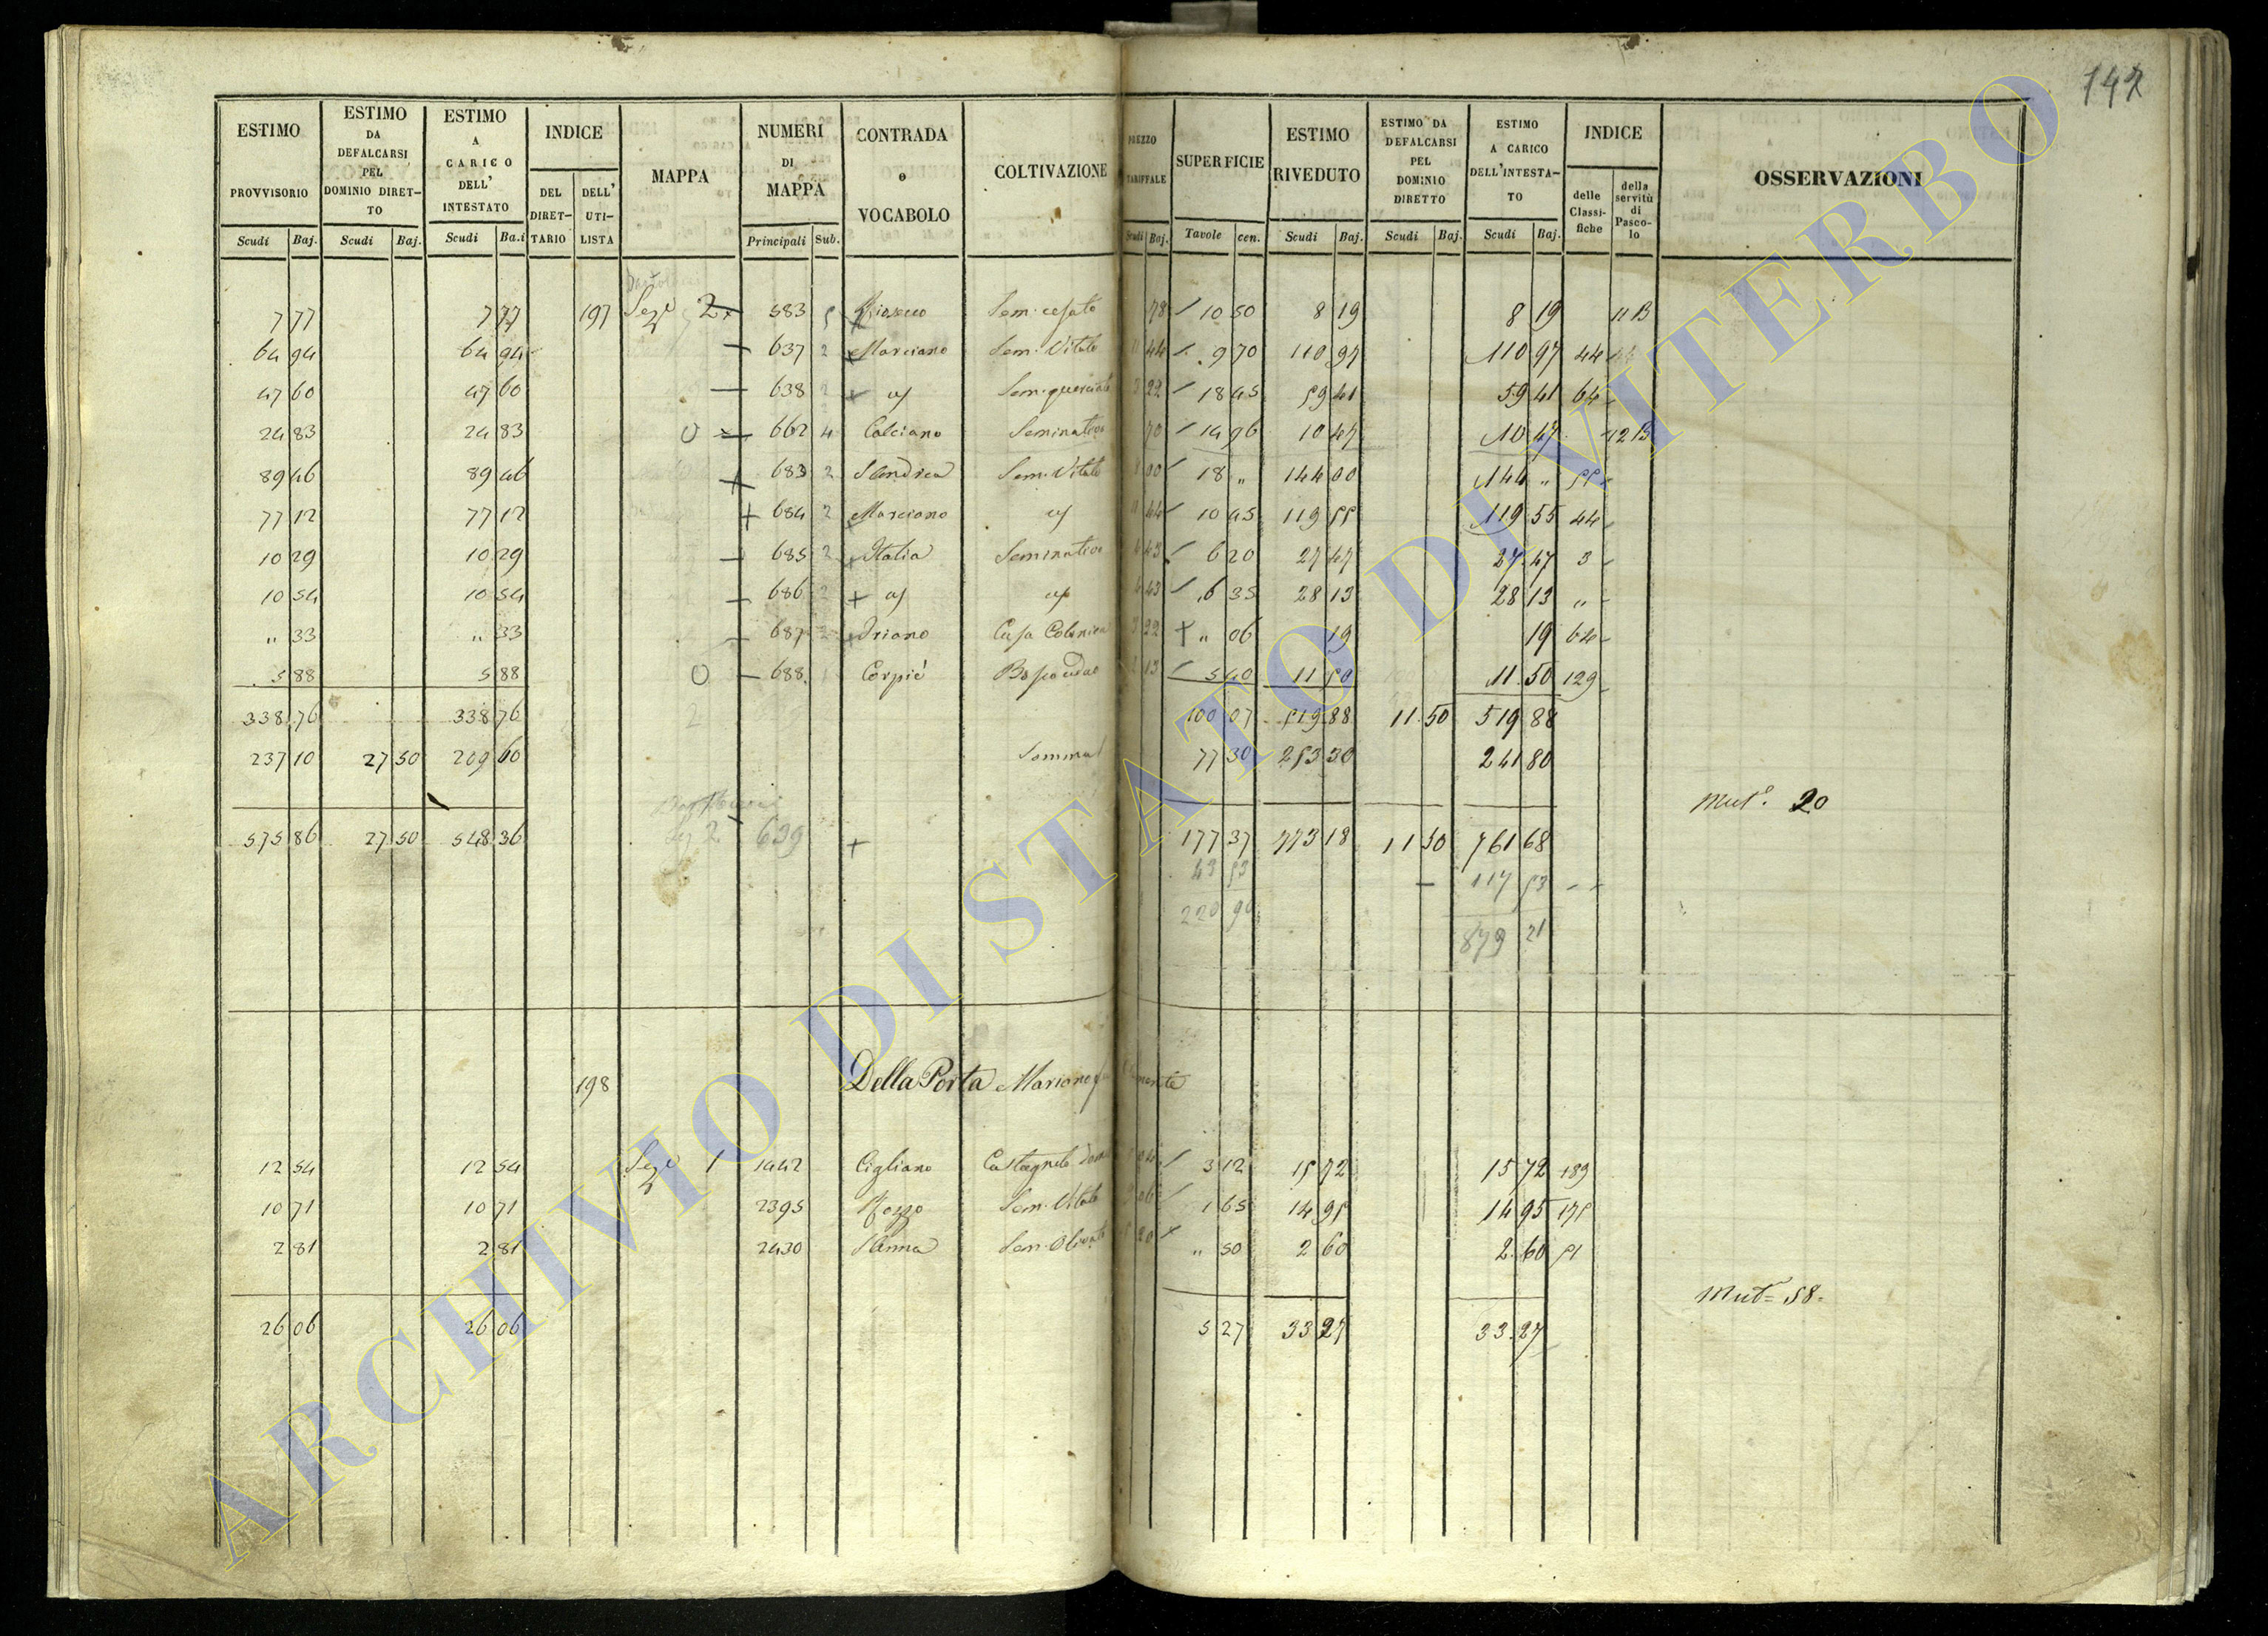 147
ESTIMO PROVVISORIO Scudi Baj. | ESTIMO DA DEFALCARSI PEL DOMINIO DIRETTO Scudi Baj. | ESTIMO A CARICO DELL' INTESTATO Scudi Ba.i | INDICE DEL DIRETTARIO DELL' UTILISTA | MAPPA | NUMERI DI MAPPA Principali Sub. | CONTRADA o VOCABOLO | COLTIVAZIONE | PREZZO TARIFFALE Scudi Baj. | SUPERFICIE Tavole cen. | ESTIMO RIVEDUTO Scudi Baj. | ESTIMO DA DEFALCARSI PEL DOMINIO DIRETTO Scudi Baj. | ESTIMO A CARICO DELL'INTESTATO Scudi Baj. | INDICE delle Classifiche della servitù di Pascolo | OSSERVAZIONI
7 77 7 77 197 Sez.e 2 583 5 Sem. cesato 78 10 50 8 19 8 19 11 B
64 94 64 94 637 2 Marciano Sem. Vitato 11 44 9 70 110 97 110 97 44
47 60 47 60 638 2 Sem. querciato 3 22 18 45 59 41 59 41 64
24 83 24 83 0 662 4 Calciano Seminativo 70 14 96 10 47 10 47 12 B
89 46 89 46 683 2 S Andrea Sem. Vitato 8 00 18 „ 144 00 144 „ 55
77 12 77 12 684 2 Marciano 11 44 10 45 119 55 119 55 44
10 29 10 29 685 2 Italia Seminativo 4 43 6 20 27 47 27 47 3
10 54 10 54 686 2 4 43 6 35 28 13 28 13 „
„ 33 „ 33 687 2 Casa Colonica 3 22 „ 06 19 19 64
5 88 5 88 0 688 1 Corpié 2 13 5 40 11 50 11 50 129
338 76 338 76 2 100 07 519 88 11 50 519 88
237 10 27 50 209 60 77 30 253 30 241 80
Mut.e 20
575 86 27 50 548 36 2 639 177 37 773 18 11 50 761 68
43 53 117 53
220 90
879 21
198 Della Porta Mariano
12 54 12 54 Sez.e 1 1442 Cigliano 3 12 15 72 15 72 189
10 71 10 71 2395 Pozzo Sem. Vitato 9 06 1 65 14 95 14 95 175
2 81 2 81 2430 S Anna Sem. Olivato 5 20 „ 50 2 60 2 60 51
Mut.e 58
26 06 26 06 5 27 33 27 33 27
ARCHIVIO DI STATO DI VITERBO